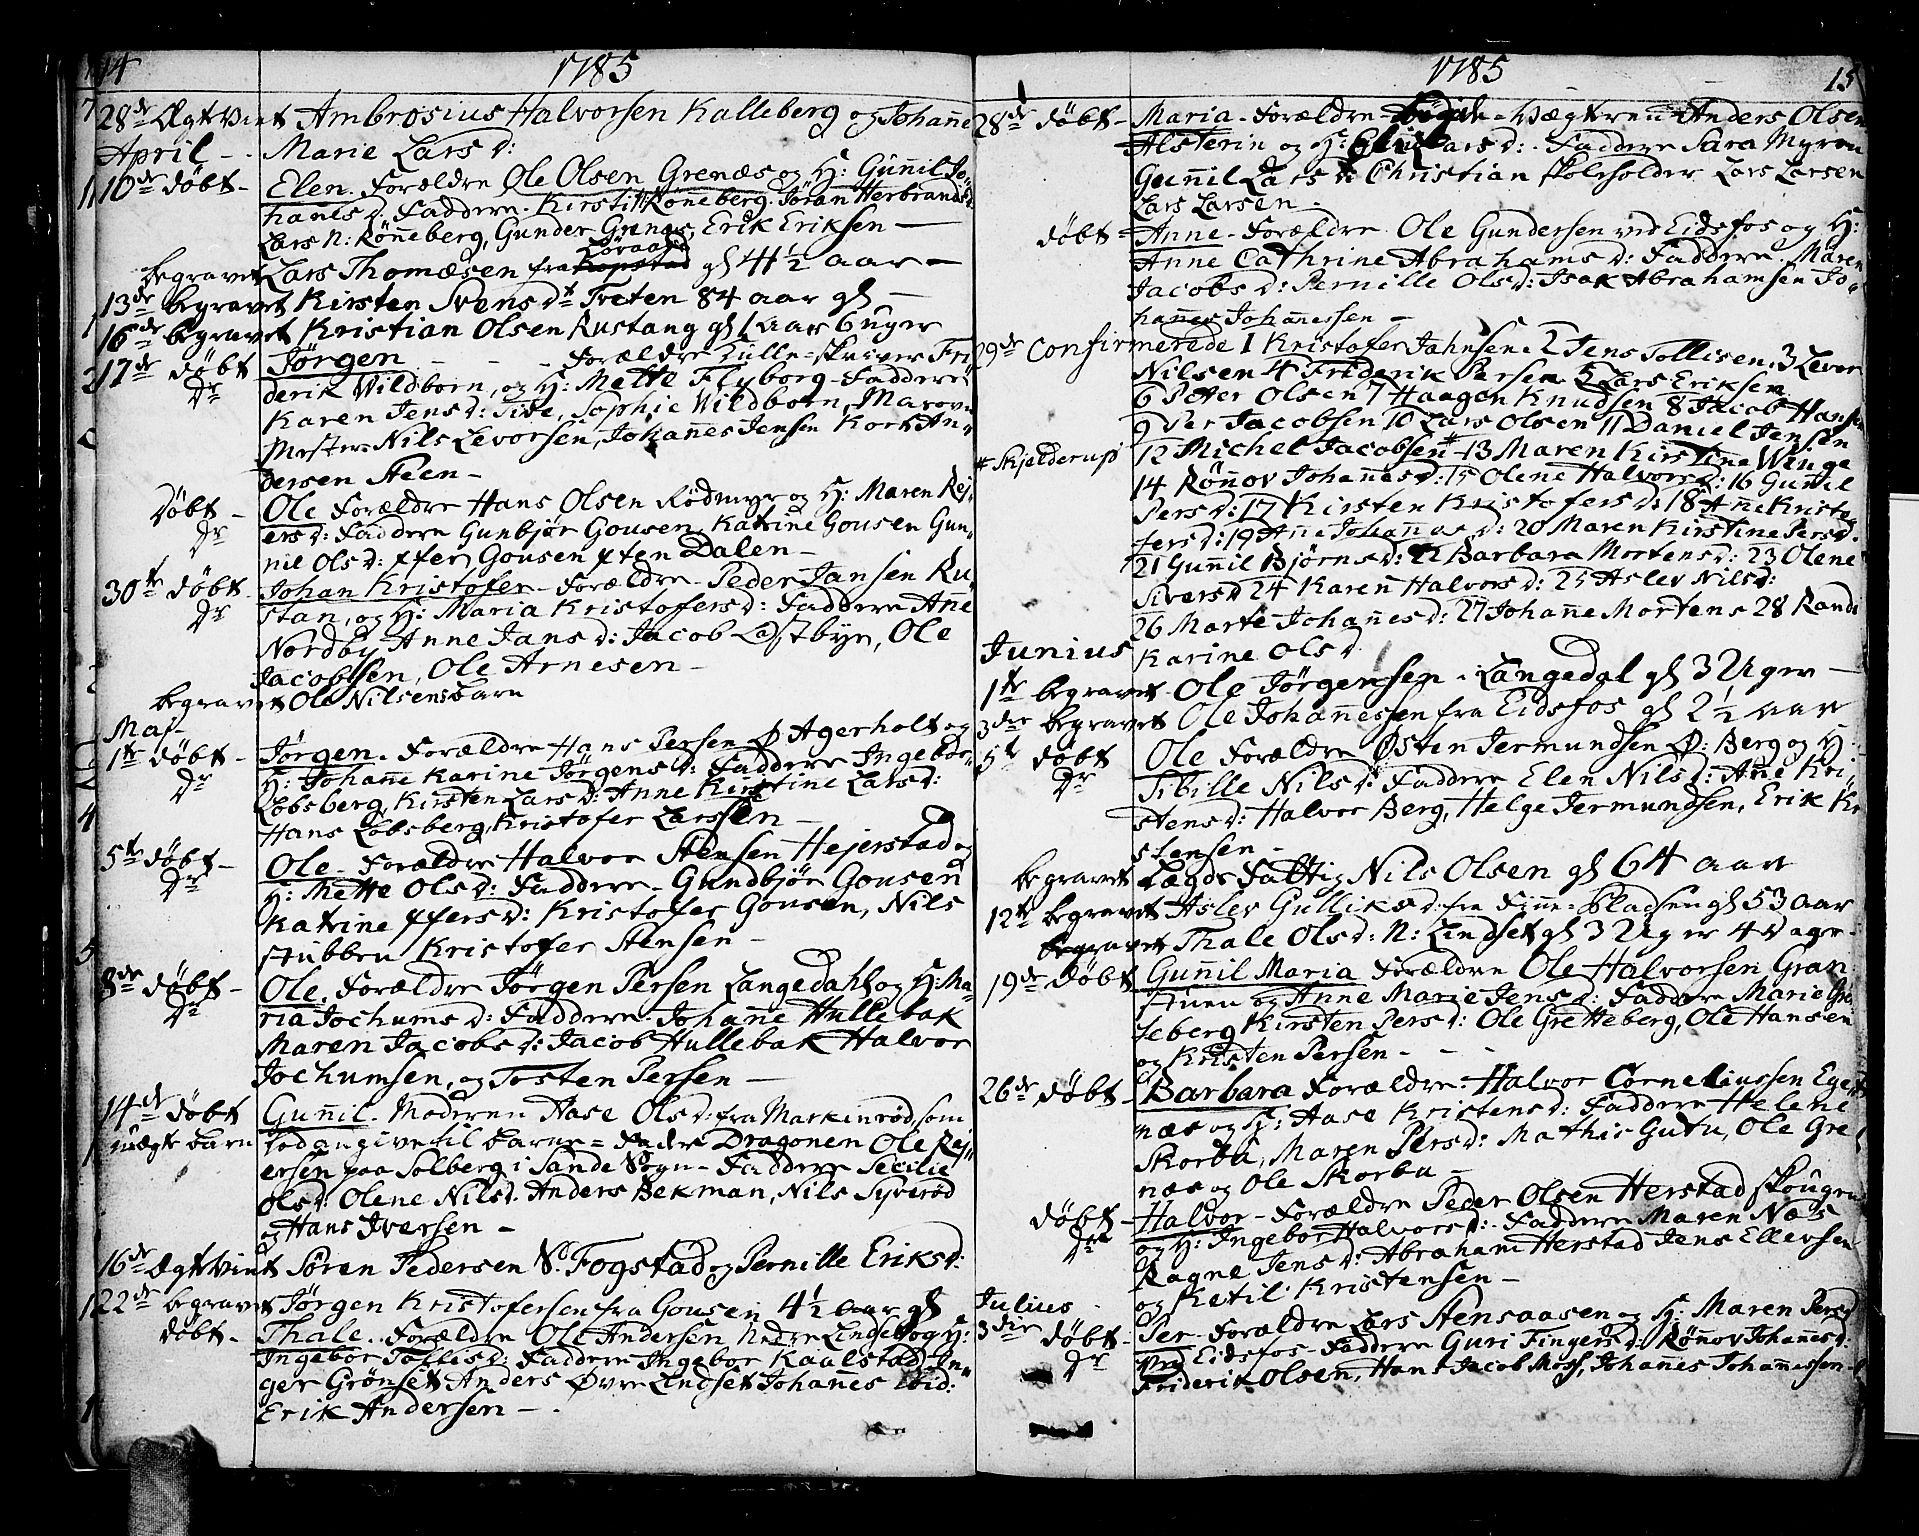 14
1785
28de Ægt Viet Ambrosius Halvorsen Kalleberg og Johanne
Marie Lars d:
April
10de døbt - Elen. Forældre Ole Olsen Grenæs og H: Gunnil Jo-
hannes d. Faddere. Kirsti Rønneberg. Jøran Herbrands d
Lars N: Rønneberg, Gunder Grenæs, Erik Eriksen -
begravet Lars Thomæsen fra Kopstad gl 41 1/2 aar -
13de begravet Kirsten Svensdt Treten 84 aar gl -
16de begravet Kristian Olsen Rustang gl 1 aar 6 uger
17de døbt Jørgen - - - Forældre Hütte-skriver Fri-
Dr derik Wildborn, og H: Mette Flyborg - Faddere
Karen Jens d: Sophie Wildborn, Masovn
Mester Nils Levorsen, Johannes Jensen Kort An-
dersen Steen -
Døbt - Ole Forældre Hans Olsen Rødmyr og H: Maren Rej-
Dr ers d: Faddere Gunbjør Gousen, Katrine Gousen Gun-
nil Ols d: Gousen Dalen -
30te døbt - Johan Kristofer - Forældre - Peder Jansen Ru-
Dr stan, og H: Maria Kristofers d: Faddere Anne
Nordby, Anne Jans d: Jacob Østbye, Ole
Jacobsen, Ole Arnesen -
begravet Ole Nilsens barn
Maj -
1te døbt - Jørgen. Forældre Hans Persen Ø Agerholt og
Dr H: Johanne Karine Jørgens d: Faddere Ingebor
Løbsberg, Kirsten Lars d: Anne Kirstine Lars d:
Hans Løbsberg, Kristofer Larsen -
5te døbt - Ole - Forældre Halvor Stensen Hejerstad og
Dr H: Mette Ols d: Faddere - Gundbjør Gousen
Katrine d: Kristofer Gousen, Nils
Stubben Kristofer Stensen -
8de døbt - Ole. Forældre Jørgen Persen Langedahl og H: Ma-
Dr ria Jochums d: Faddere - Johanne Hullebak
Maren Jacobs d: Jacob Hullebak Halvor
Jochumsen, og Tosten Persen -
14de døbt Gunnil. Moderen Aase Ols d: fra Markenrød, som
uægte barn lod angive til barne = Fader Dragonen Ole Rej-
ersen paa Solberg i Sande Sogn - Faddere Secilie
Ols d: Olene Nils d. Anders Bekman, Nils Syverød
og Hans Iversen -
16de Ægt Viet Søren Pedersen N. Fogstad og Pernille Eriks d:
22de begravet Jørgen Kristofersen fra Gousen 4 1/2 aar gl
døbt - Thale. Forældre Ole Andersen Nedre Lindset og H:
Ingebor Tollis d: Faddere Ingebor Kaalstad, In-
ger Grønset Anders Øvre Lindset Johannes ibid:
Erik Andersen - .
1785
15
28de døbt - Maria - Forældre - Vægteren Anders Olsen
Alsterin og H: Lars d: - Faddere Sara Myren
Gunnil Lars d Christian Skoleholder Lars Larsen
Lars Larsen -
døbt - Anne - Forældre - Ole Gundersen ved Eidsfos og H:
Anne Cathrine Abrahams d: Faddere - Maren
Jacobs d: Pernille Ols d: Isak Abrahamsen Jo-
hannes Johannessen -
29de Confirmerede 1 Kristofer Jahnsen. 2 Jens Tollisen, 3 Levor
Nilsen 4 Friderik Persen 5 Lars Eriksen
6 Peter Olsen 7 Haagen Knudsen 8 Jacob Hansen
9 Per Jacobsen 10 Lars Olsen 11 Daniel Jensen
# Skjelderup 12 Michel Jacobsen # 13 Maren Kirstine Winge
14 Rønnov Johannes d: 15 Olene Halvors d: 16 Gunil
Pers d: 17 Kirsten Kristofers d: 18 Anne Kristo-
fers d: 19 Anne Johannes d: 20 Maren Kirstine Pers d.
21 Gunnil Bjørns d: 22 Barbara Mortens d: 23 Olene
Sivers d 24 Karen Halvors d: 25 Aslev Nils d:
26 Marte Johannes d: 27 Johanne Mortens 28 Randi
Karine Ols d
Junius
1te begravet - Ole Jørgensen - Langedal gl 3 Uger -
3die begravet Ole Johannessen fra Eidsfos gl 2 1/2 aar
5t døbt Ole Forældre Østen Jermundsen Ø: Berg og H:
Dr Sibille Nils d: Faddere Elen Nils d: Ane Kri-
stens d: Halvor Berg, Helge Jermundsen, Erik Kri
stensen -
begravet Lægds Fattig Nils Olsen gl 64 aar
12te begravet Aslev Gulliks d: fra Finne-Pladsen gl 53 aar
begravet Thale Ols d: N: Lindset gl 3 Uger 4 dage -
19de døbt Gunnil Maria Forældre Ole Halvorsen Gran-
stuen og Anne Marie Jens d: Faddere Marie Gre-
teberg Kirsten Pers d: Ole Gretteberg, Ole Hansen
og Kristen Persen - - -
26de døbt - Barbara Forældre - Halvor Corneliussen Ege-
næs og H: Aase Kristens d: Faddere Helene
Skorbu, Maren Pers d: Mathis Gutu, Ole Gre-
næs og Ole Skorbu -
døbt - Halvor - Forældre Peder Olsen Herstad Skougen
Dr og H: Ingebor Halvors d: - Faddere Maren Næs
Ragne Jens d: Abraham Herstad Jens Ellevsen
og Ketil Kristensen -
Julius
3die døbt - Per - Forældre Lars Stensaasen og H: Maren Pers d
Dr ved Eidsfos - Faddere Guri Fingers d: Rønnov Johannes d:
Friderik Olsen, Hans Jacob Moss, Johannes Johannessen -